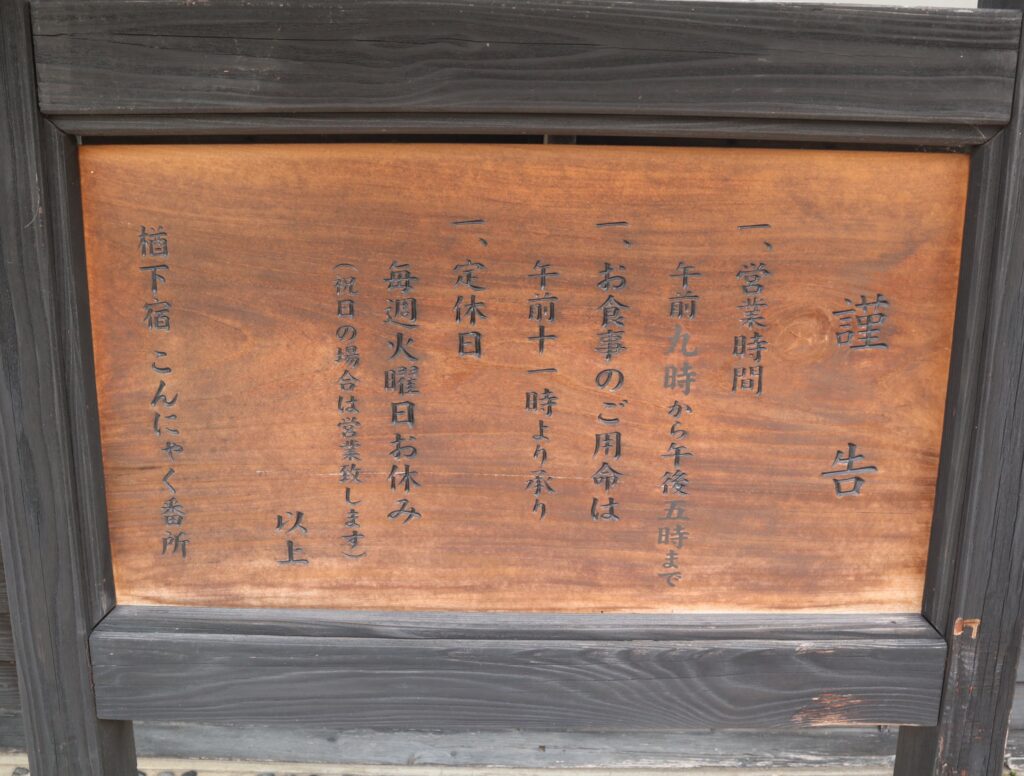 謹告
一、営業時間
午前九時から午後五時まで
一、お食事のご用命は
午前十一時より承り
一、定休日
毎週火曜日お休み
(祝日の場合は営業致します)
以上
楢下宿 こんにゃく番所